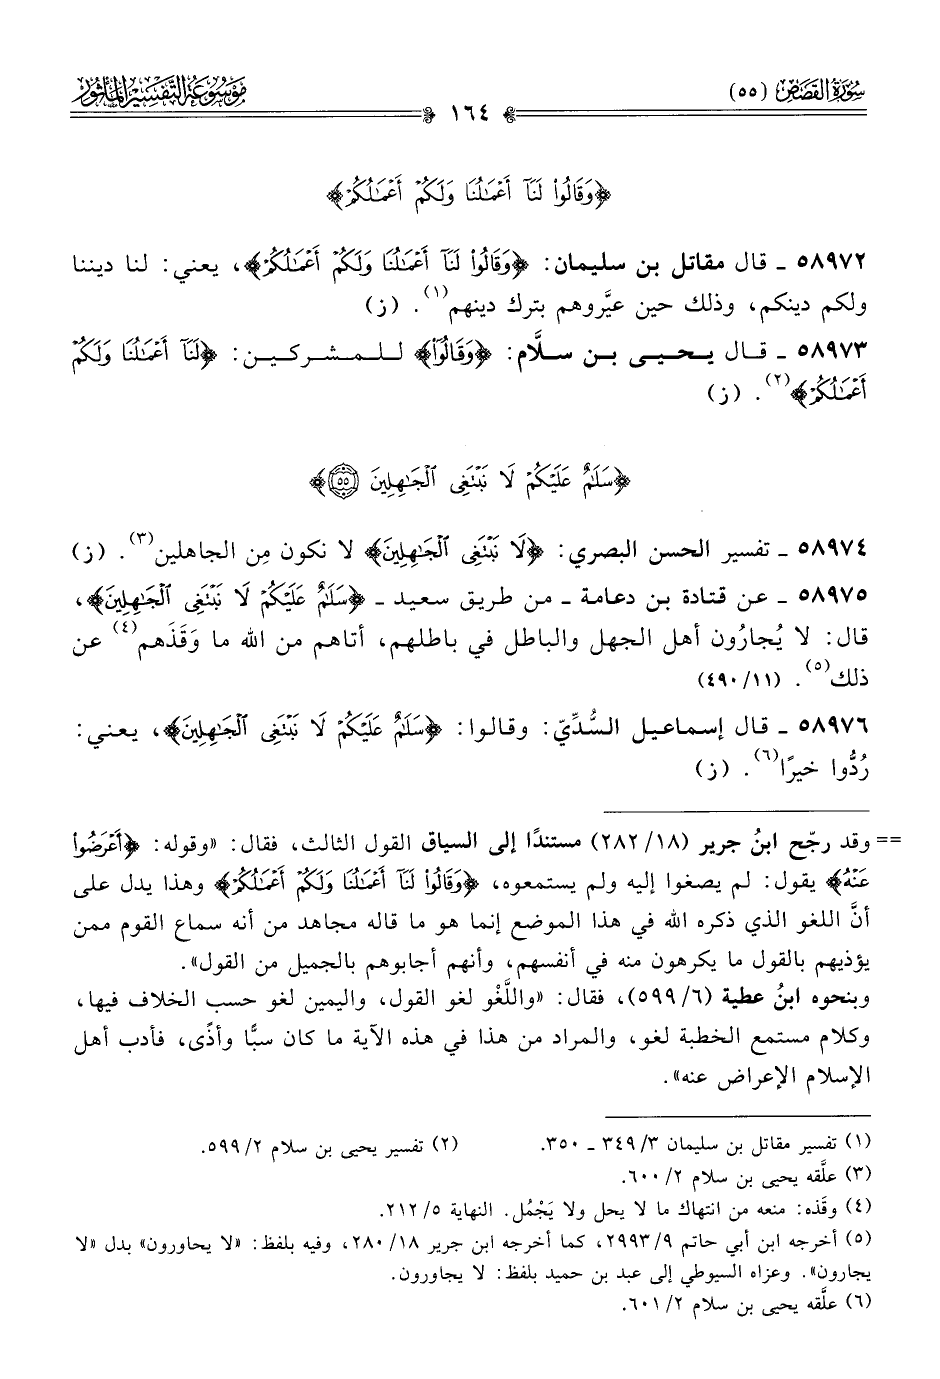 سُورَةُ القَصَصِ (٥٥)
مَوْسُوعَةُ التَّفْسِيرِ المَأْثُورِ
١٦٤
﴿وَقَالُوا۟ لَنَآ أَعْمَٰلُنَا وَلَكُمْ أَعْمَٰلُكُمْ﴾
٥٨٩٧٢ ـ قال مقاتل بن سليمان: ﴿وَقَالُوا۟ لَنَآ أَعْمَٰلُنَا وَلَكُمْ أَعْمَٰلُكُمْ﴾، يعني: لنا ديننا
ولكم دينكم، وذلك حين عيَّروهم بترك دينهم(١). (ز)
٥٨٩٧٣ ـ قال يحيى بن سلَّام: ﴿وَقَالُوا۟﴾ للمشركين: ﴿لَنَآ أَعْمَٰلُنَا وَلَكُمْ
أَعْمَٰلُكُمْ﴾(٢). (ز)
﴿سَلَٰمٌ عَلَيْكُمْ لَا نَبْتَغِى ٱلْجَٰهِلِينَ ٥٥﴾
٥٨٩٧٤ ـ تفسير الحسن البصري: ﴿لَا نَبْتَغِى ٱلْجَٰهِلِينَ﴾ لا نكون مِن الجاهلين(٣). (ز)
٥٨٩٧٥ ـ عن قتادة بن دعامة ـ من طريق سعيد ـ ﴿سَلَٰمٌ عَلَيْكُمْ لَا نَبْتَغِى ٱلْجَٰهِلِينَ﴾،
قال: لا يُجارُون أهل الجهل والباطل في باطلهم، أتاهم من الله ما وَقَذَهم(٤) عن
ذلك(٥). (١١/ ٤٩٠)
٥٨٩٧٦ ـ قال إسماعيل السُّدِّيّ: وقالوا: ﴿سَلَٰمٌ عَلَيْكُمْ لَا نَبْتَغِى ٱلْجَٰهِلِينَ﴾، يعني:
رُدُّوا خيرًا(٦). (ز)
== وقد رجّح ابنُ جرير (١٨/ ٢٨٢) مستندًا إلى السياق القول الثالث، فقال: «وقوله: ﴿أَعْرَضُوا۟
عَنْهُ﴾ يقول: لم يصغوا إليه ولم يستمعوه، ﴿وَقَالُوا۟ لَنَآ أَعْمَٰلُنَا وَلَكُمْ أَعْمَٰلُكُمْ﴾ وهذا يدل على
أنَّ اللغو الذي ذكره الله في هذا الموضع إنما هو ما قاله مجاهد من أنه سماع القوم ممن
يؤذيهم بالقول ما يكرهون منه في أنفسهم، وأنهم أجابوهم بالجميل من القول».
وبنحوه ابنُ عطية (٦/ ٥٩٩)، فقال: «واللَّغْو لغو القول، واليمين لغو حسب الخلاف فيها،
وكلام مستمع الخطبة لغو، والمراد من هذا في هذه الآية ما كان سبًّا وأذًى، فأدب أهل
الإسلام الإعراض عنه».
(١) تفسير مقاتل بن سليمان ٣/ ٣٤٩ ـ ٣٥٠. (٢) تفسير يحيى بن سلام ٢/ ٥٩٩.
(٣) علَّقه يحيى بن سلام ٢/ ٦٠٠.
(٤) وقَذه: منعه من انتهاك ما لا يحل ولا يَجْمُل. النهاية ٥/ ٢١٢.
(٥) أخرجه ابن أبي حاتم ٩/ ٢٩٩٣، كما أخرجه ابن جرير ١٨/ ٢٨٠، وفيه بلفظ: «لا يحاورون» بدل «لا
يجارون». وعزاه السيوطي إلى عبد بن حميد بلفظ: لا يجاورون.
(٦) علَّقه يحيى بن سلام ٢/ ٦٠١.